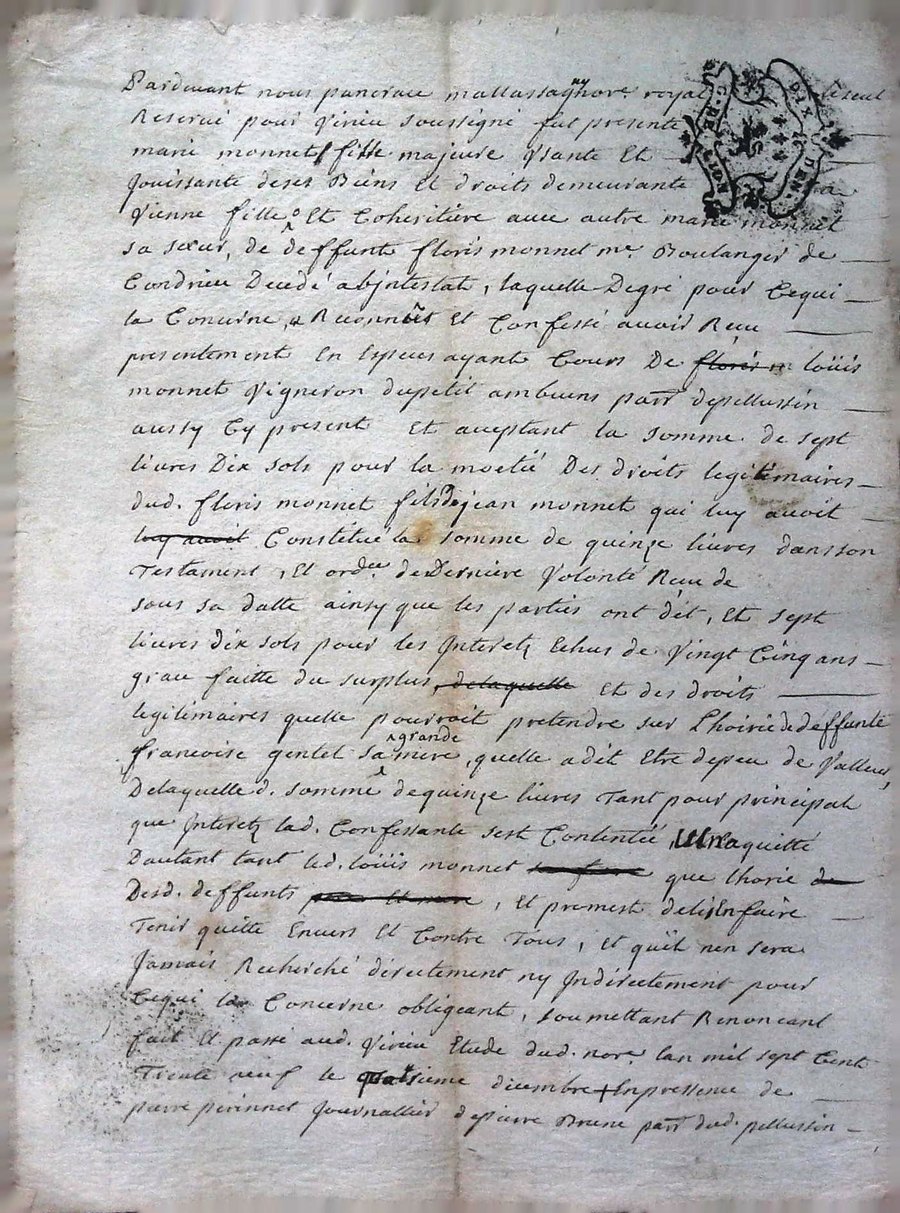 Pardevant nous pancrace mallassagny nore. royal le seul
Reservé pour virieu soussigné fut presente
marie monnet fille majeure usante et
jouissante deses Biens et droits demeurante a
vienne fille et Coheritiere avec autre marie monnet
sa sœur, de deffunt floris monnet me. Boulanger de
Condrieu Decedé abjntestat, laquelle Degré pour Cequi
la Concerne, a Reconnüe et Confessé avoir Receu
presentement En Especes ayant Cours De floris m loüis
monnet Vigneron dupetit ambuens parr. depellussin
aussy Cy present et aceptant la somme de sept
livres Dix sols pour la moetié Des droits legitimaires
dud. floris monnet fils de jean monnet qui luy avoit
luy avoit Constitué la somme de quinze livres dansson
Testament, et ordce de Derniere Volonté Receu de
sous sa datte ainsy que les parties ont dét, et sept
livres dix sols pour les Interetz Echus de Vingt Cinq ans
grace faitte du surplus, delaquelle et des droits
legitimaires quelle pourroit pretendre sur L'hoirie de deffunte
francoise gentet sa grande mere, quelle a dét Etre depeu de Valleur,
Delaquelle d. somme dequinze livres Tant pour principal
que Interetz lad. Confessante sest Contentée, et en a quitté
Dautant tant led. loüis monnet que lhorie de
Desd. deffunts pere et mere, et promest delésenfaire
Tenir quitte Envers et Contre Tous, et quël nen sera
Jamais Recherché directement ny Indirectement pour
Cequi la Concerne obligeant, soumettant Renonceant
fait et passé aud. Virieu Etude dud. nore. lan mil sept Cent
Trente neuf le quatrieme decembre + Enpressence de
pierre perinnet journallier depierre Brune parr. dud. pellussin